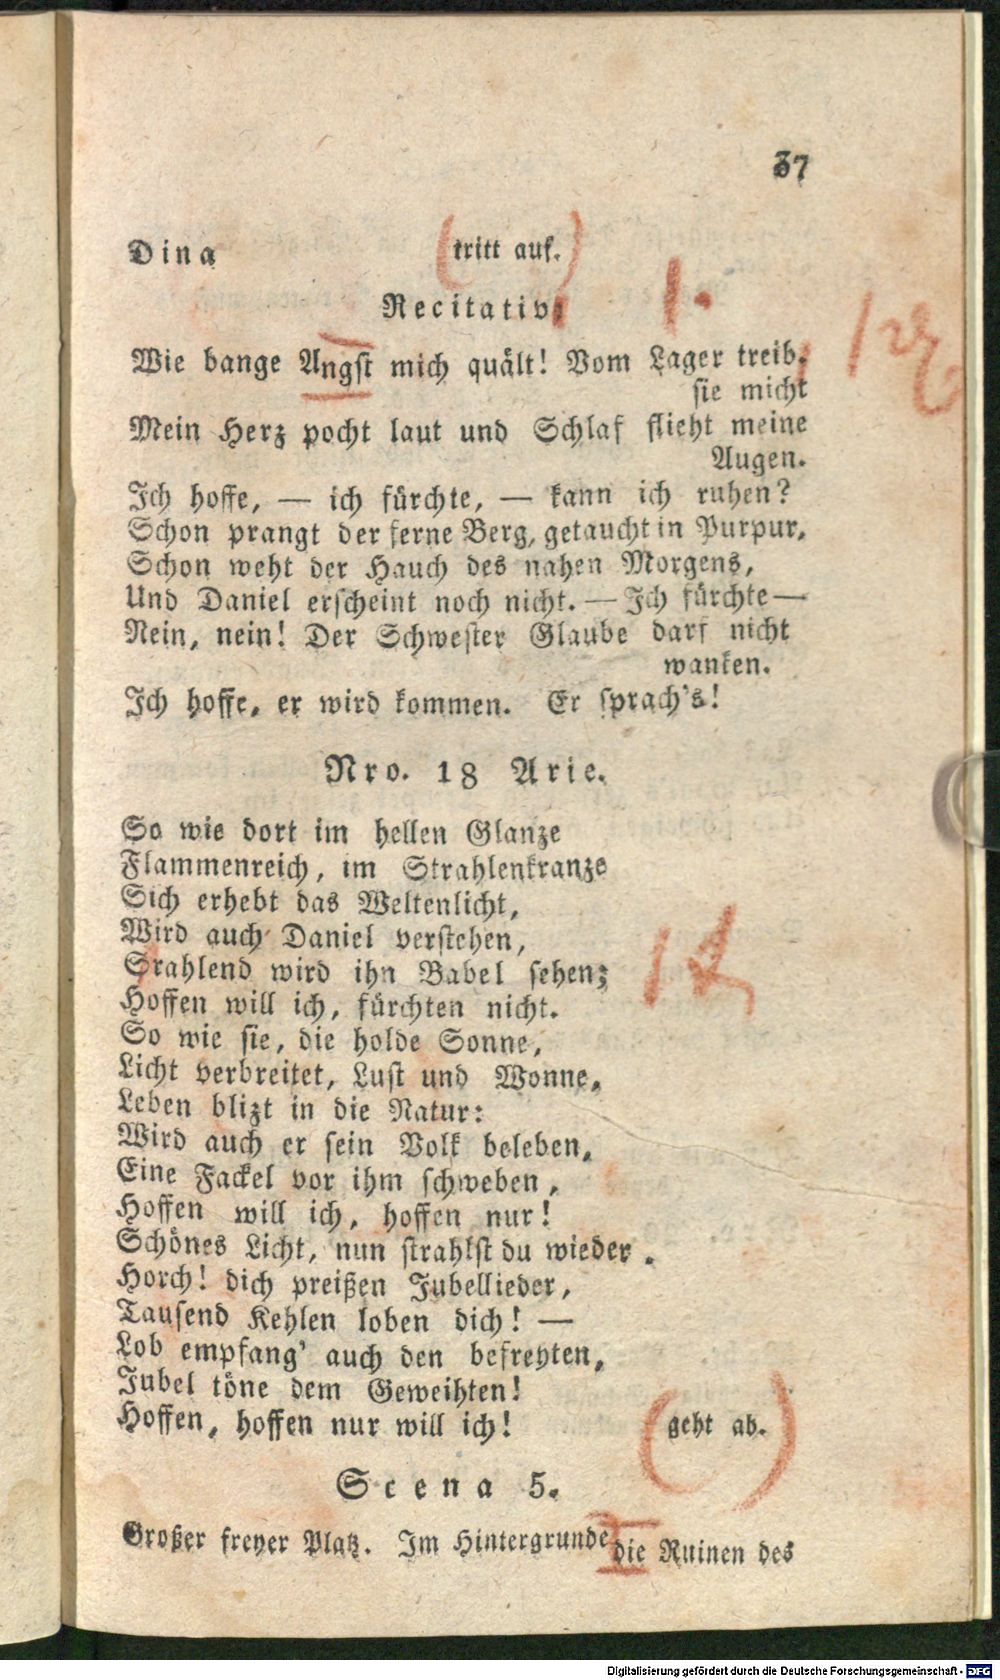 37
Dina (tritt auf.)
Recitativ: 1.
Wie bange Angst mich quält! Vom Lager treib.
sie micht
Mein Herz pocht laut und Schlaf flieht meine
Augen.
Ich hoffe, — ich fürchte, — kann ich ruhen?
Schon prangt der ferne Berg, getaucht in Purpur,
Schon weht der Hauch des nahen Morgens,
Und Daniel erscheint noch nicht. — Ich fürchte —
Nein, nein! Der Schwester Glaube darf nicht
wanken.
Ich hoffe, er wird kommen. Er sprach's!
Nro. 18 Arie.
So wie dort im hellen Glanze
Flammenreich, im Strahlenkranze
Sich erhebt das Weltenlicht,
Wird auch Daniel verstehen,
Srahlend wird ihn Babel sehen;
Hoffen will ich, fürchten nicht.
So wie sie, die holde Sonne,
Licht verbreitet, Lust und Wonne,
Leben blizt in die Natur:
Wird auch er sein Volk beleben,
Eine Fackel vor ihm schweben,
Hoffen will ich, hoffen nur!
Schönes Licht, nun strahlst du wieder.
Horch! dich preißen Jubellieder,
Tausend Kehlen loben dich! —
Lob empfang' auch den befreyten,
Jubel töne dem Geweihten!
Hoffen, hoffen nur will ich! (geht ab.)
Scena 5.
Großer freyer Platz. Im Hintergrunde die Ruinen des
Digitalisierung gefördert durch die Deutsche Forschungsgemeinschaft - DFG